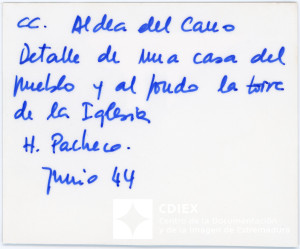 CC. Aldea del Cano
Detalle de una casa del
pueblo y al fondo la torre
de la Iglesia
H. Pacheco.
Junio 44
CDIEX
Centro de la Documentación
y de la Imagen de Extremadura